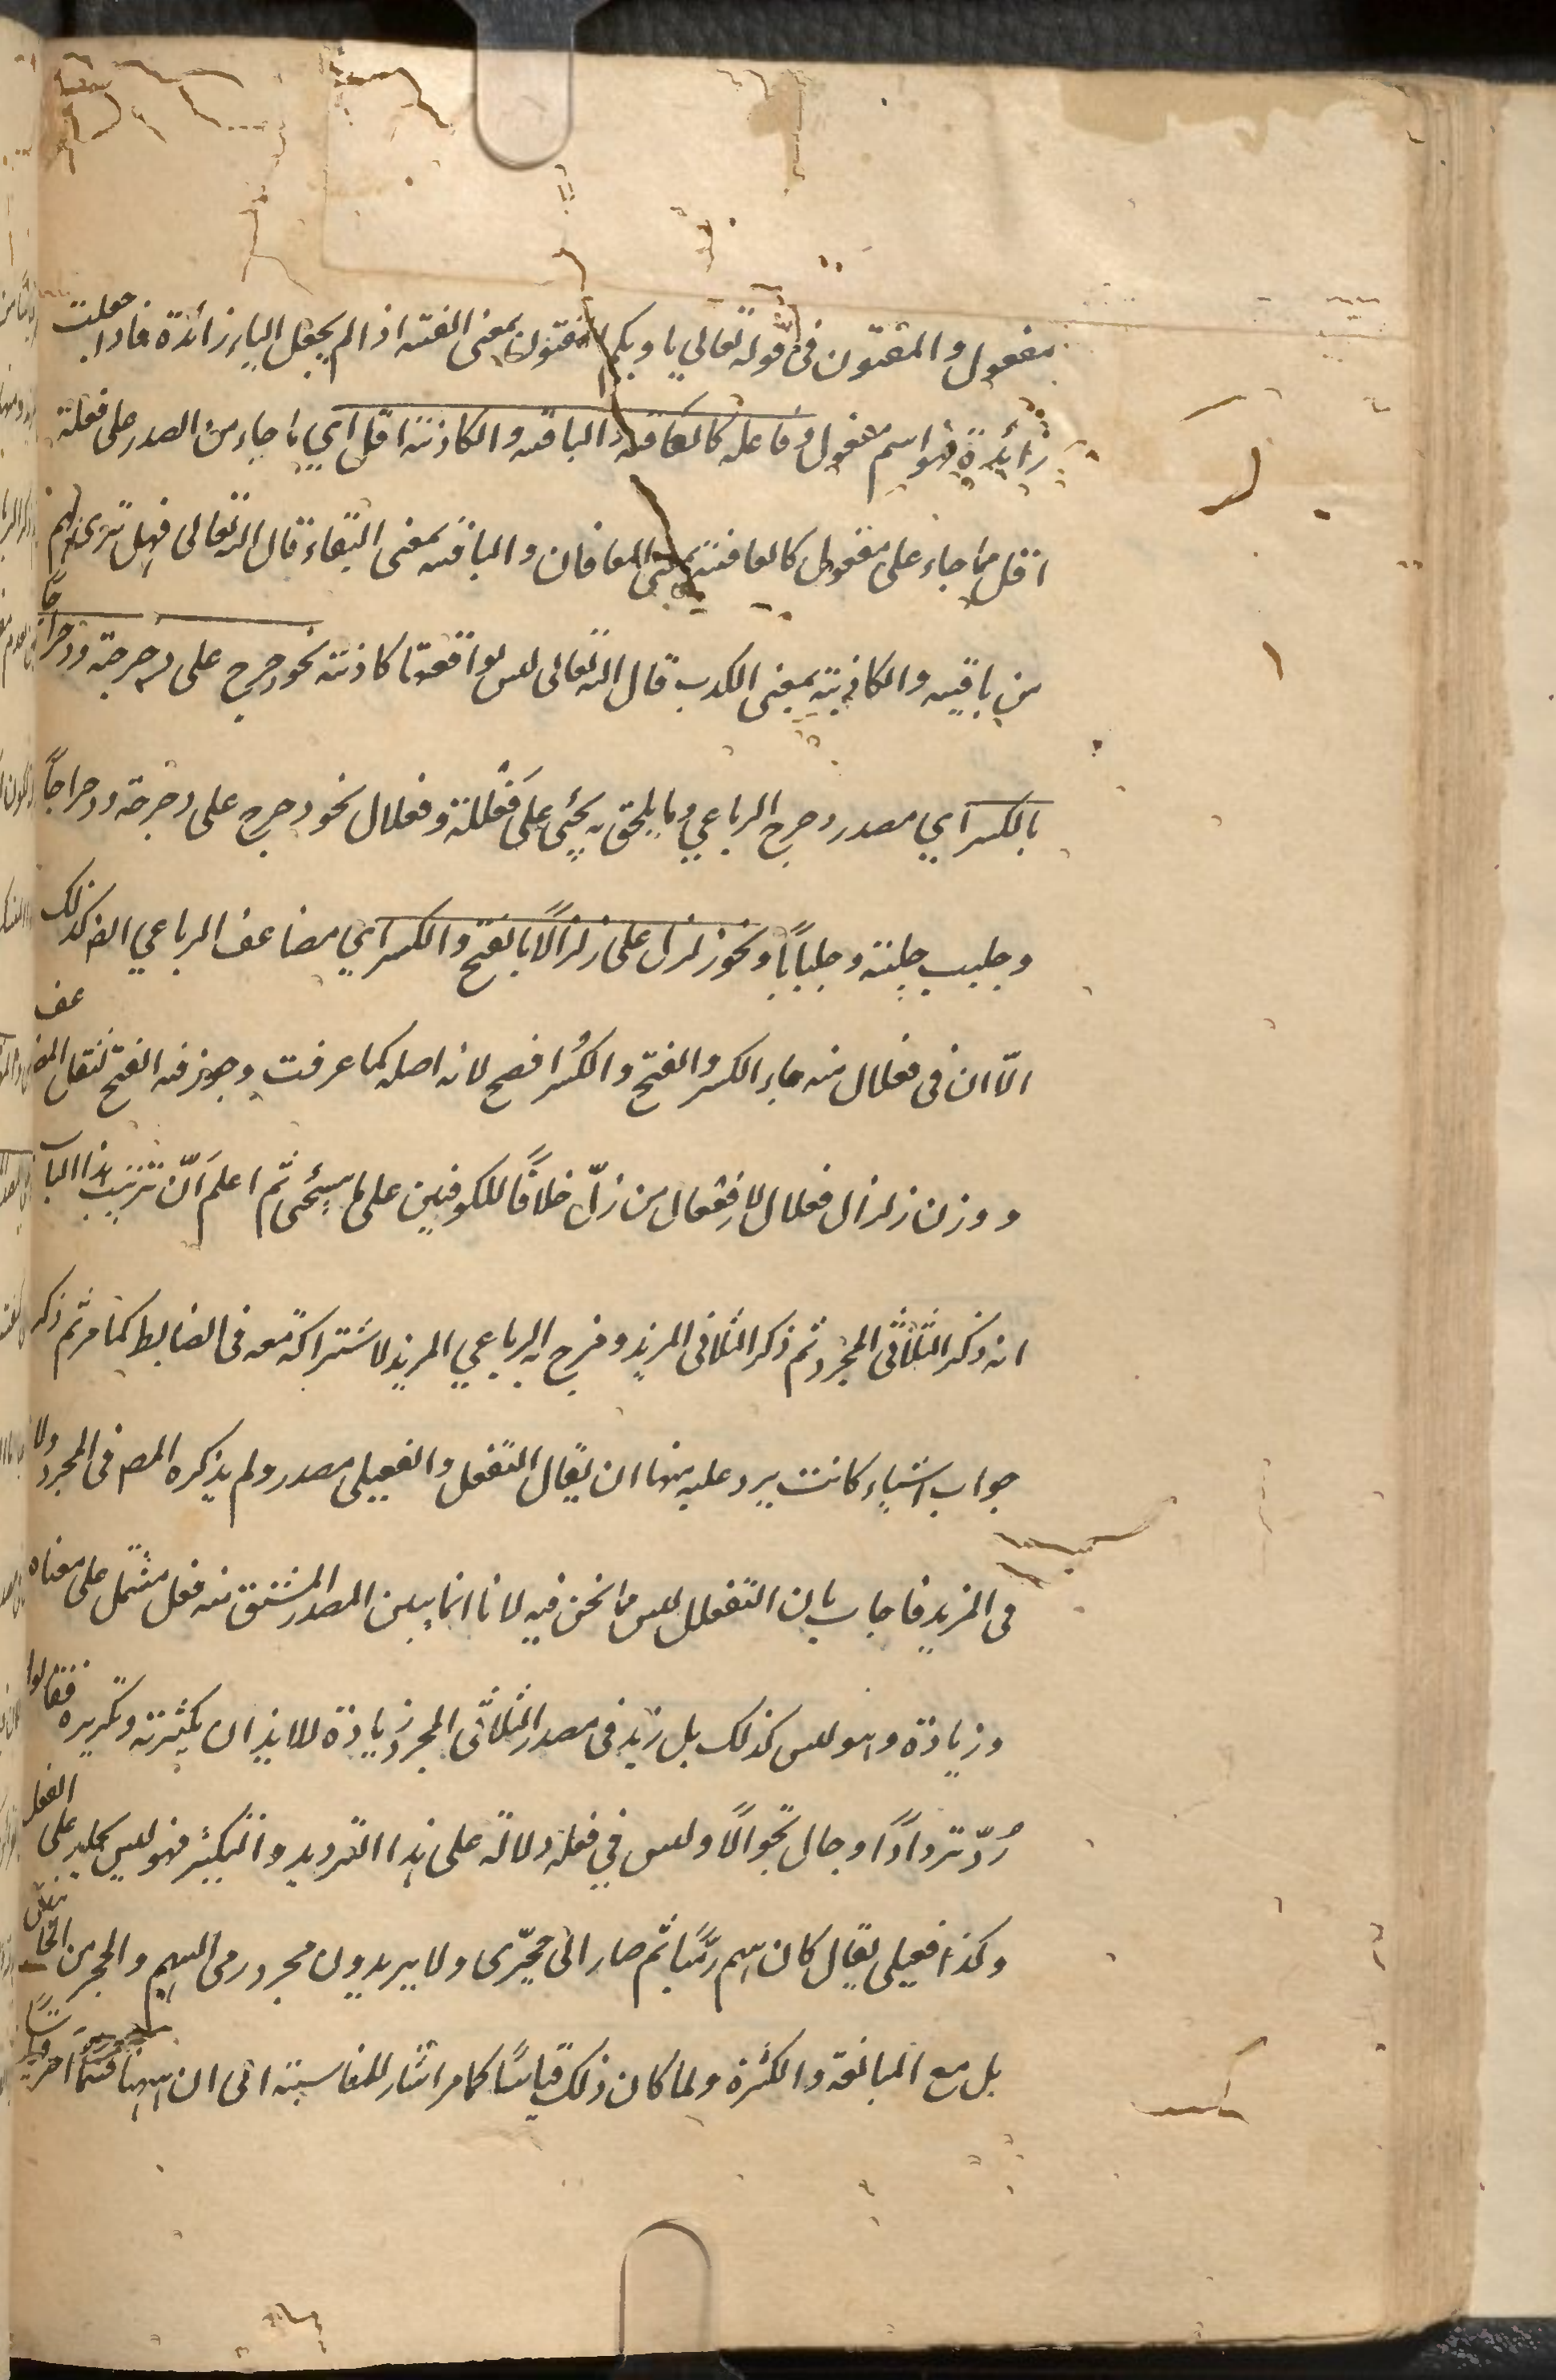 مفعول والمفتون فى قوله تعالي باويكم المفتون بمعنى الفتنه اذا لم يجعل الباء زائدة فاذا جعلت
زائدة فهو اسم مفعول وفاعله كالعافيه والباقيه والكاذبة اقل اي ما جاء من المصدر على فعلة
اقل مما جاء على مفعول كالعافية بمعنى المعافات والباقيه بمعنى البقاء قال الله تعالى فهل ترى لهم
من باقيه والكاذبة بمعنى الكذب قال الله تعالى ليس لوقعتها كاذبة نحو دحرج على دحرجة ودحراجًا
بالكسر اي مصدر دحرج الرباعي وما يلحق به يجئى على فَعْلَلة وفعلال نحو دحرج على دحرجة ودحراجاً
وجلبب جلببة وجلباباً ونحو زلزل على زلزالاً بالفتح والكسر اي مضاعف الرباعي ايضا كذلك
الّا ان فى فعلال منه جاء الكسر والفتح والكسر افصح لانه اصله كما عرفت وجوز فيه الفتح لثقل المضاعف
ووزن زلزال فعلال لا فعفال من زلّ خلافًا للكوفيين على ما سيجئى ثم اعلم انّ ترتيب هذا الباب
انه ذكر الثلاثى المجرد ثم ذكر الثلاثى المزيد ومزج به الرباعي المزيد لاشتراكه معه فى الضابط كما مر ثم ذكر
جواب اشياء كانت يرد عليه منها ان يقال التفعل والفعيلى مصدر ولم يذكره المص فى المجرد ولا
فى المزيد فاجاب بان التفعلل ليس مما نحن فيه لانا انما نبين المصدر المشتق منه فعل مشتمل على معناه
وزيادة وهو ليس كذلك بل زيد فى مصدر الثلاثى المجرد زيادة للايذان بكثرته وتكريره فقالوا
رُدّ تردادًا وجال تجوالًا وليس في فعله دلالة على هذا الترديد والتكثير فهو ليس بجار على الفعل
وكذا فعيلى يقال كان بينهم رمّيا ثم صار الى حجّيزى ولا يريدون مجرد رمى السهم والحجز من
بل مع المبالغة والكثرة ولما كان ذلك قياسًا كما مر اشار للمناسبة الى ان ههنا قسمًا آخر